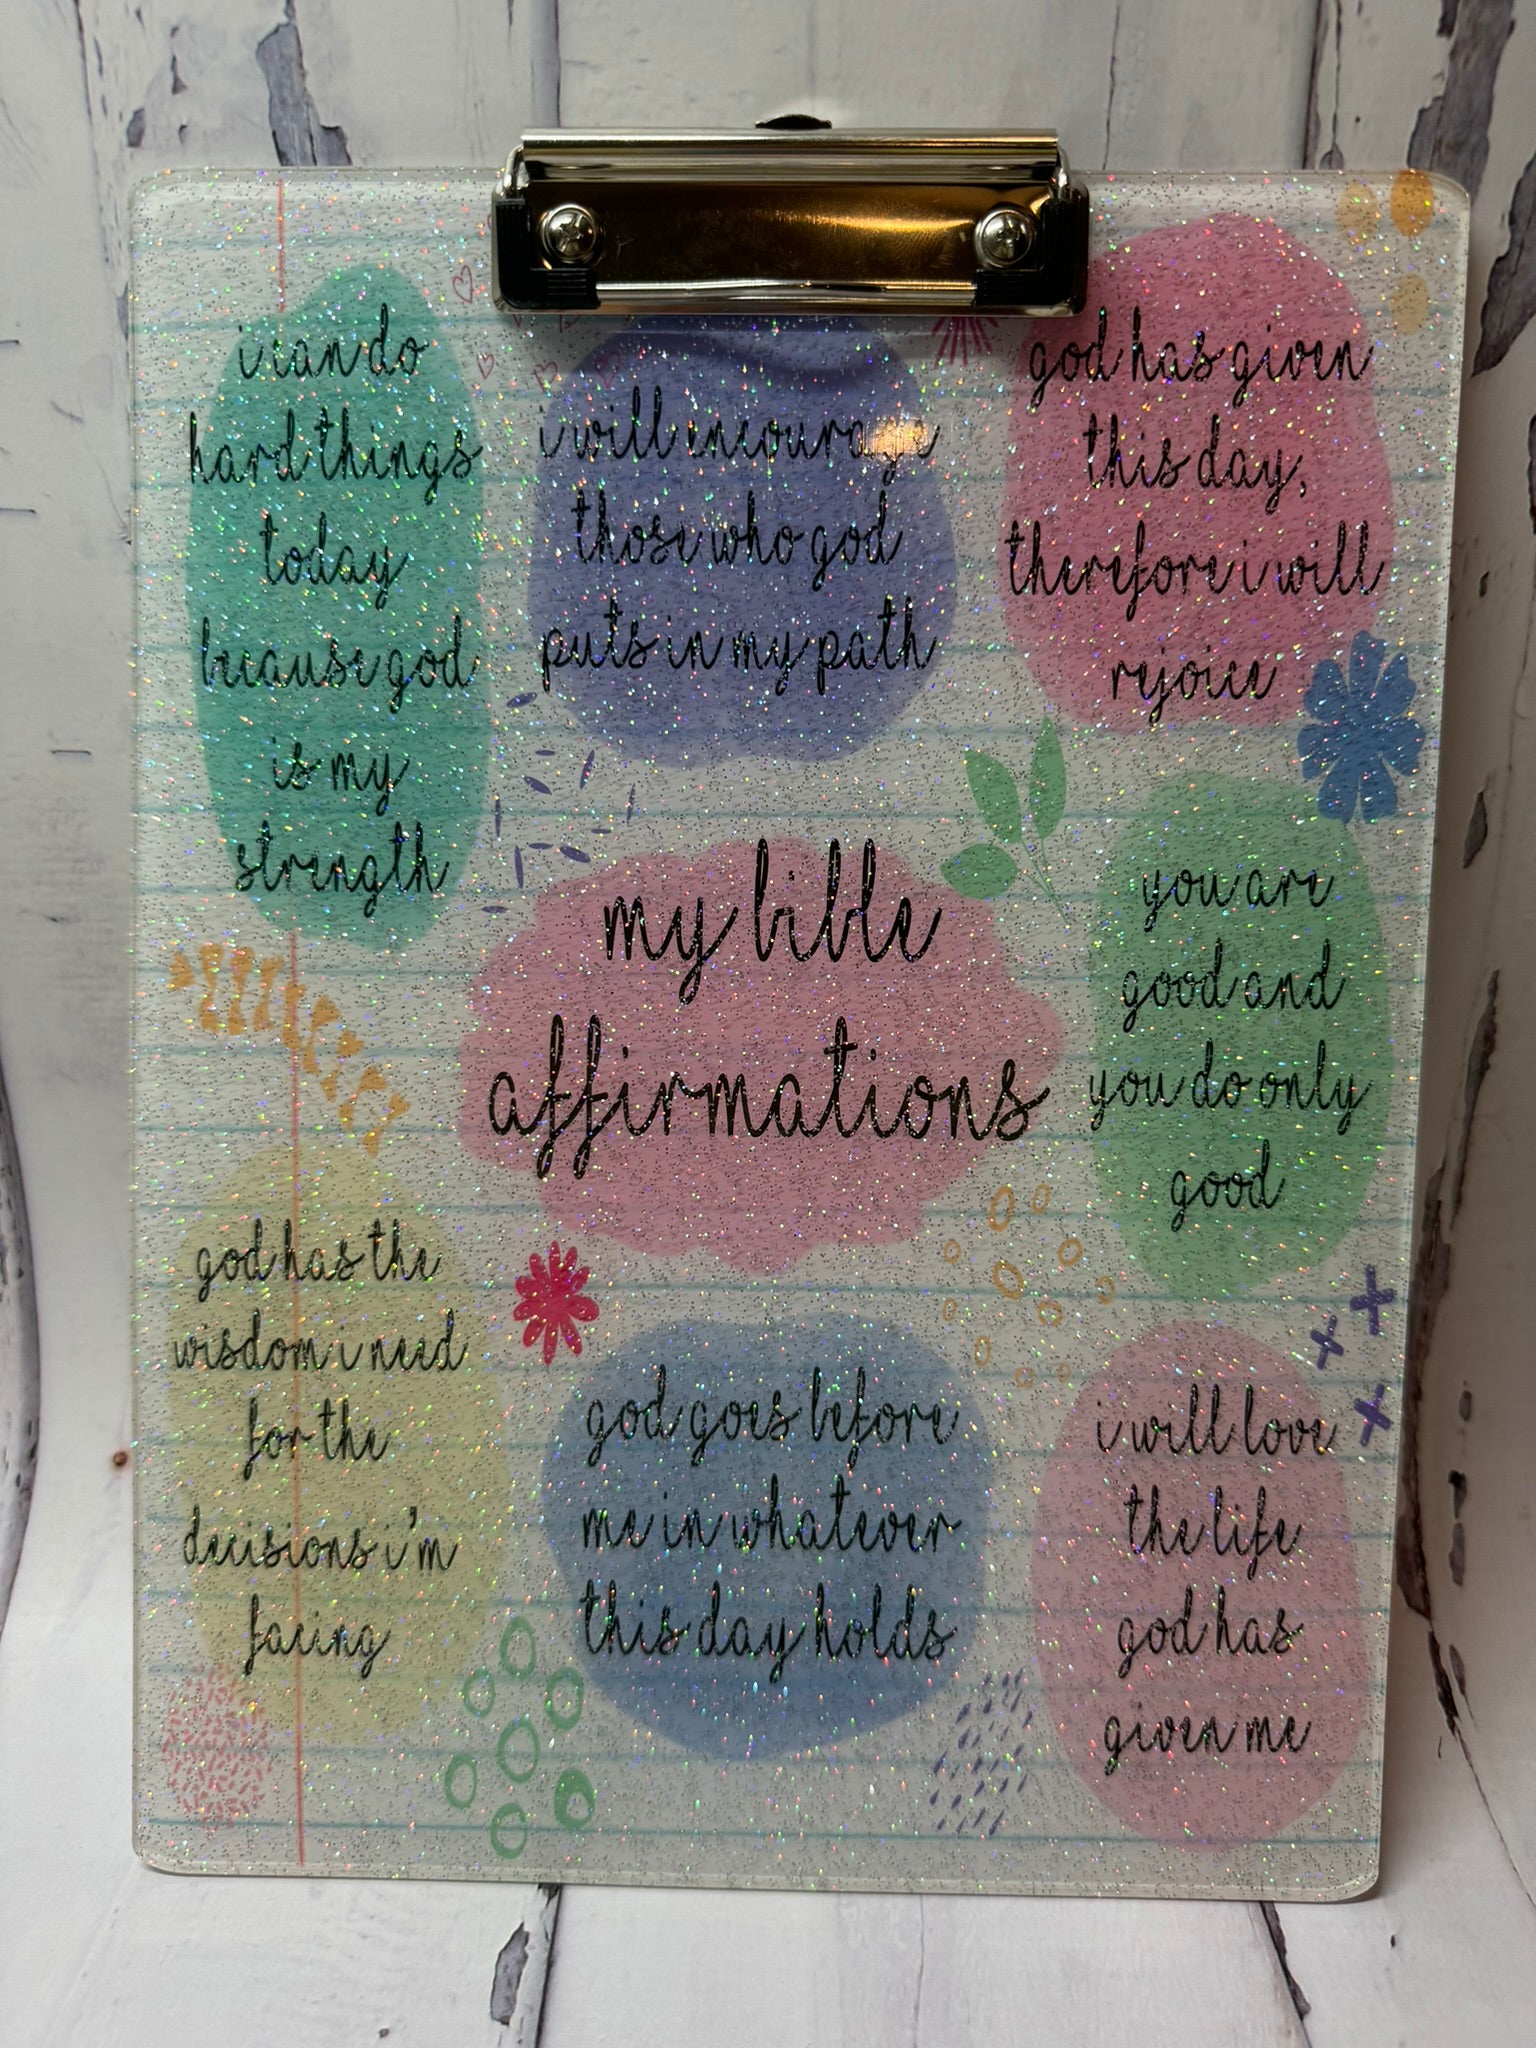 i can do
hard things
today
because god
is my
strength
i will encourage
those who god
puts in my path
god has given
this day,
therefore i will
rejoice
my bible
affirmations
you are
good and
you do only
good
god has the
wisdom i need
for the
decisions i'm
facing
god goes before
me in whatever
this day holds
i will love
the life
god has
given me